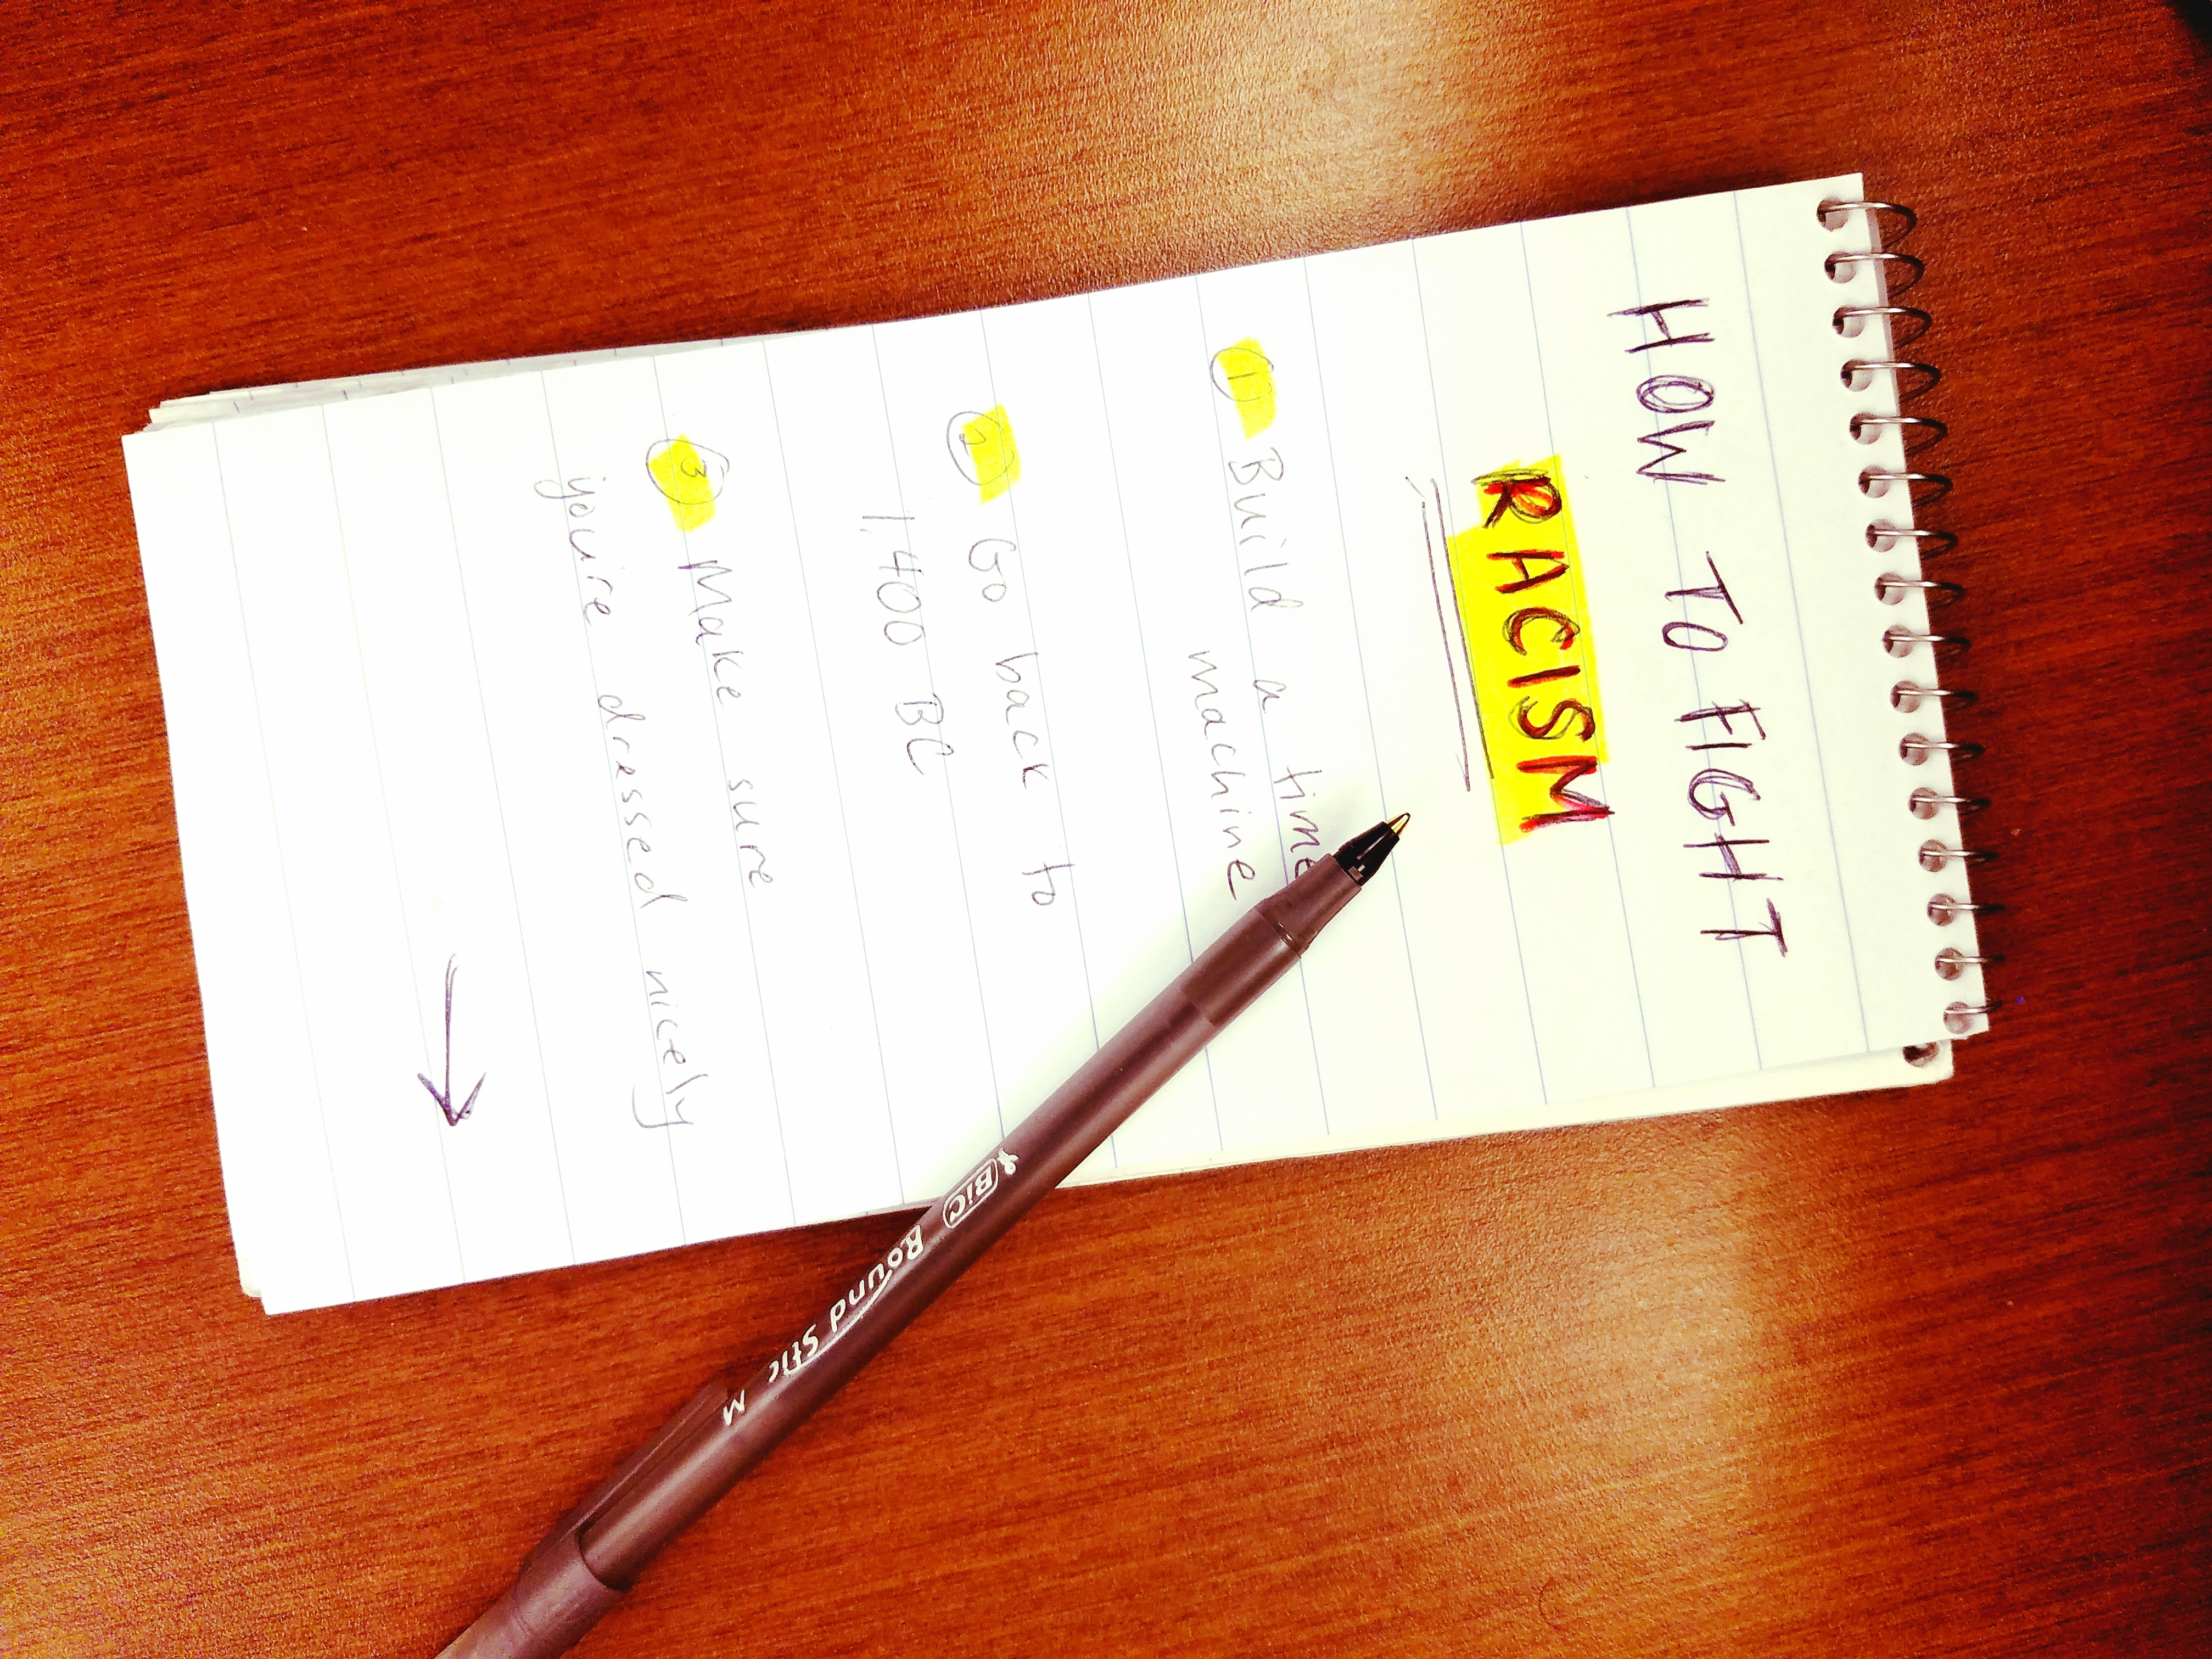 HOW TO FIGHT
RACISM
1 Build a time
machine
2 Go back to
1,400 BC
3 Make sure
you're dressed nicely
BIC Round Stic M